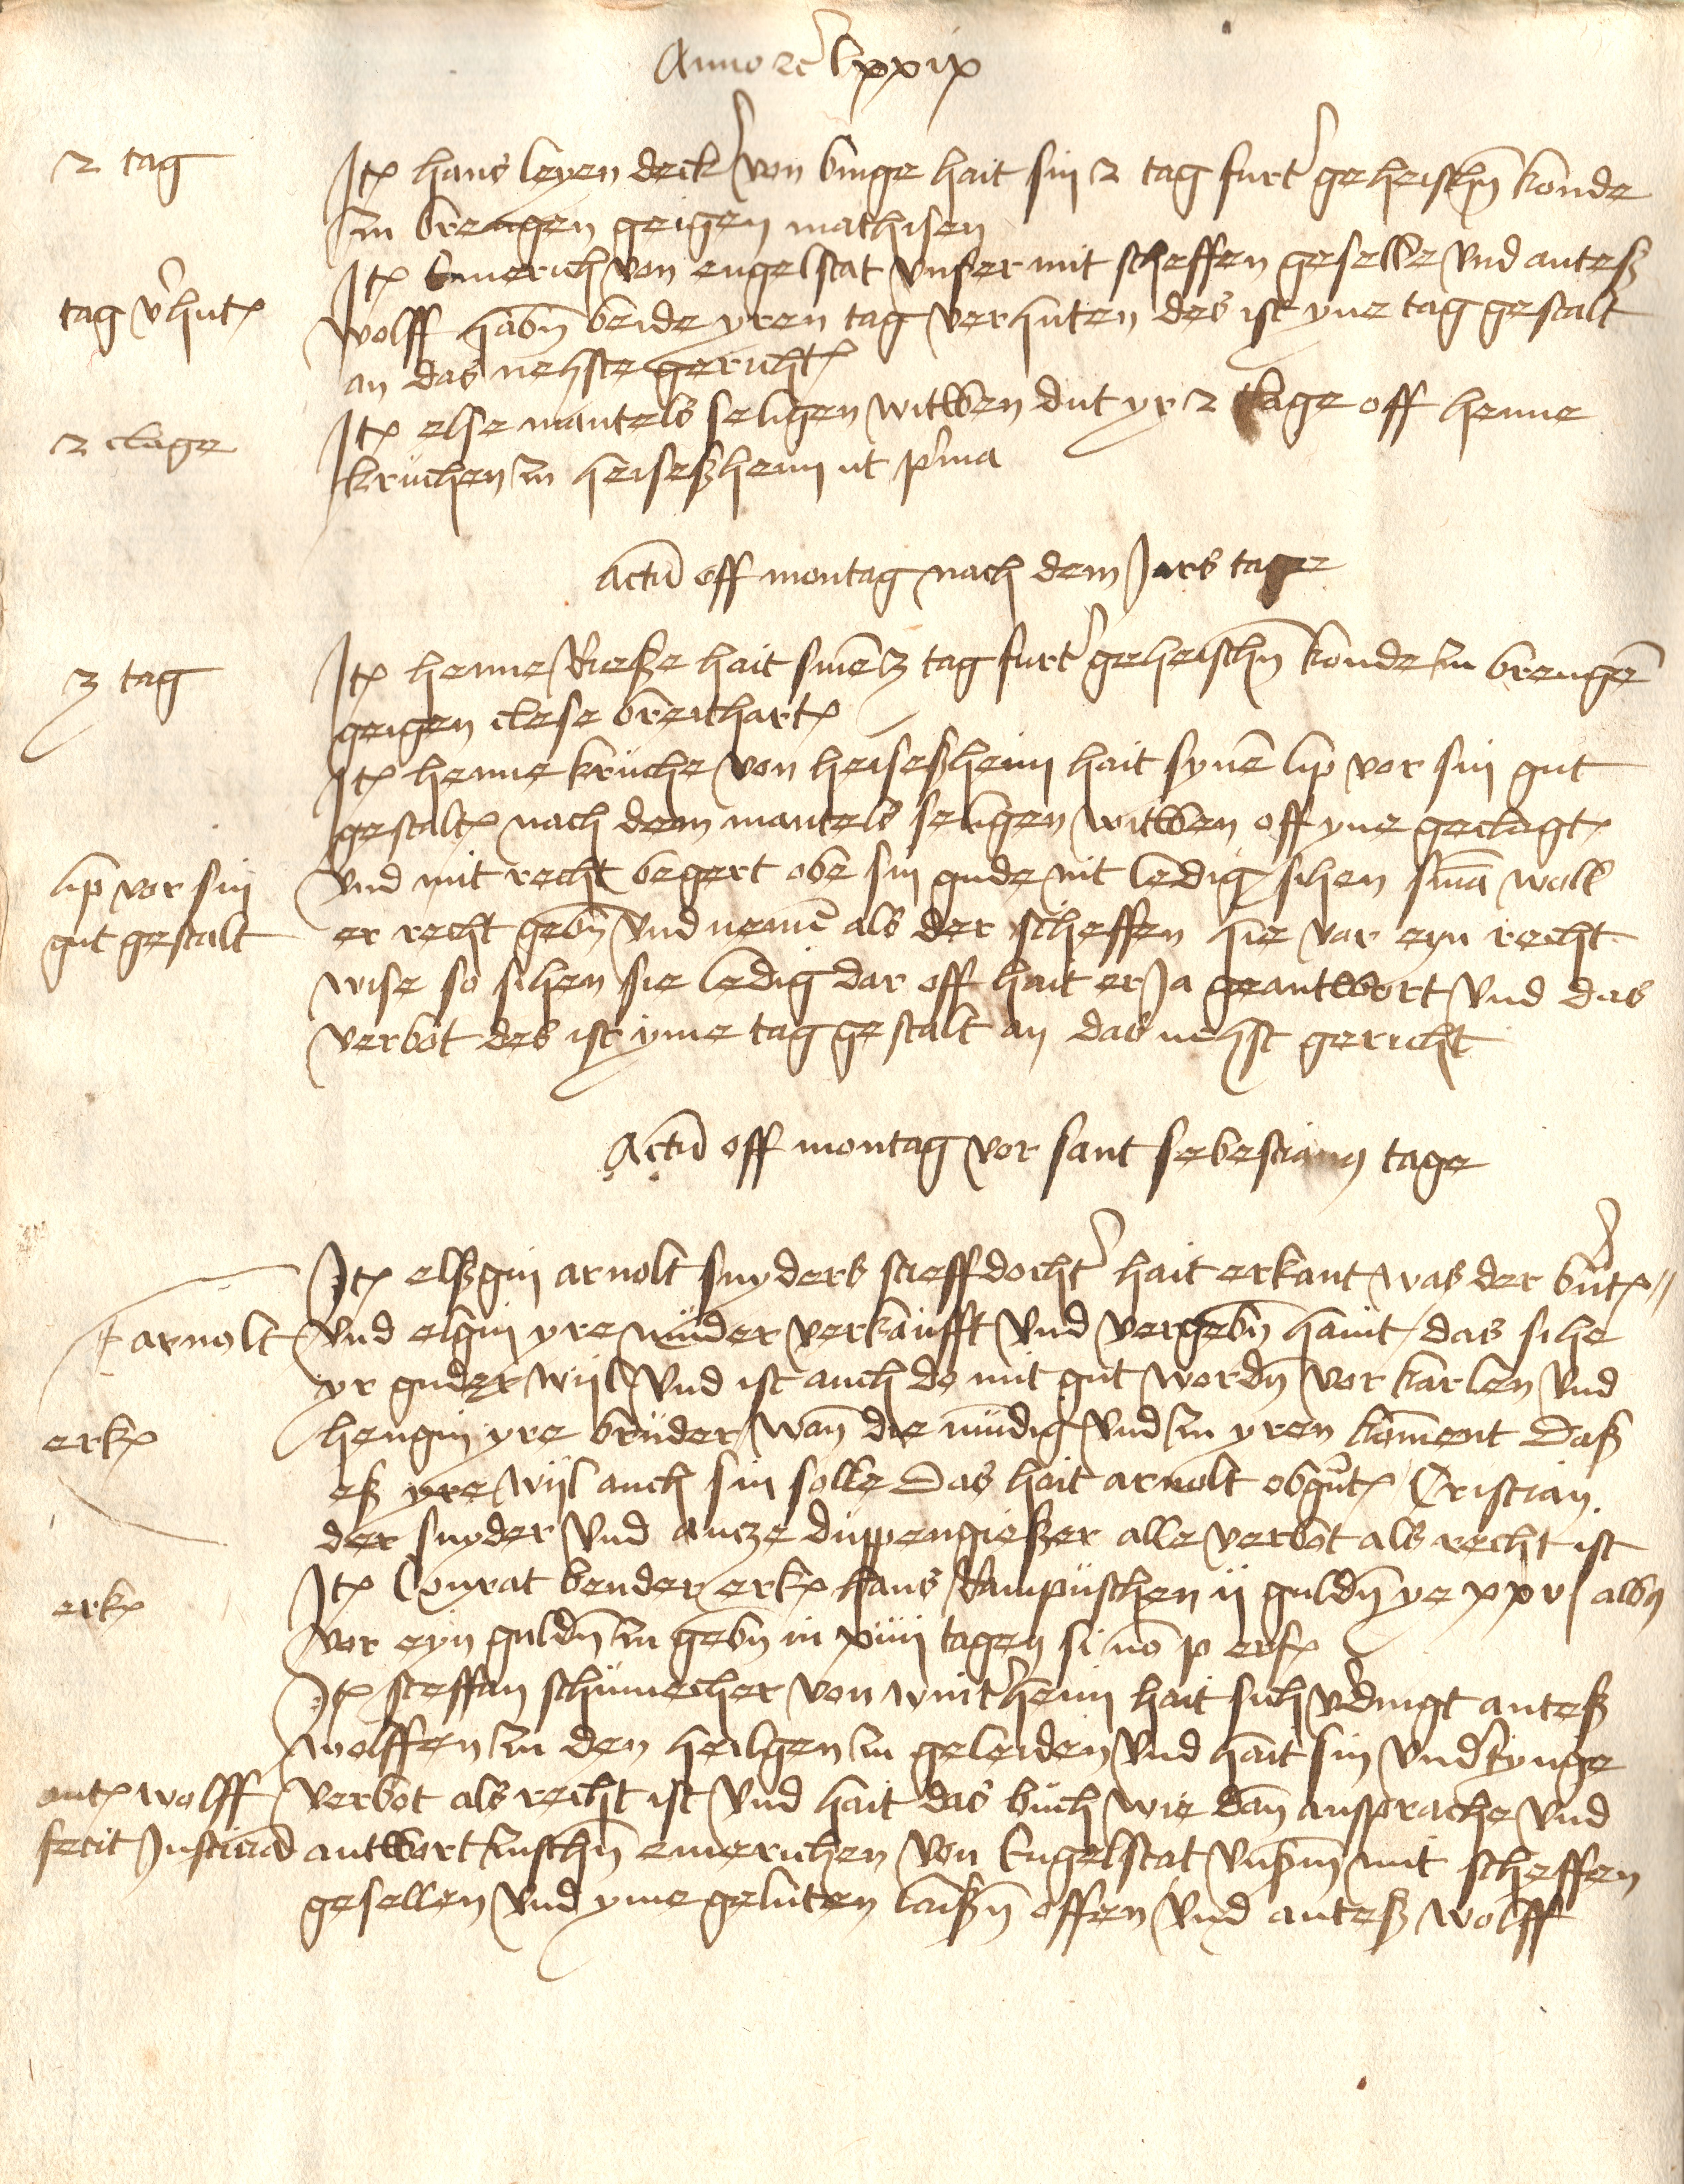 Anno etc lxxix
2 tag
Itē hans leyen deck' von binge hait sin 2 tag furt' geheischn konde
zu brengen geigen mathisen
Itē Emerich von engelstat vnser mit scheffen geselle vnd anteß
tag v'hutē
wolff habn beide yren tag verhuten des ist yne tag gestalt
an das nehste gerichtē
2 clage
Itē else mantels seligen witwen dut yr 2 clage off henne
kruchen zu heisesheim ut p'ma
Actū off montag nach dem Jars tage
3 tag
Itē henne Rieße hait sinē 3 tag furt' geheischn konde zu brengē
geigen clese breithartē
Itē henne kruche von heiseßheim hait synē lip vor sin gut
gestaltē nach dem mantels seligen witwen off yne geclagtē
lip vor sin
vnd mit recht begert obe sin gude nit ledig sihen sinā woll
gut gestalt
er recht gebn vnd nemē als der scheffen hie vor eyn recht
wise so sihen sie ledig dar off hait er Ja geantwort vnd das
verbot des ist yme tag gestalt an das nehst gericht
Actū off montag vor sant sebestians tage
Itē elßgin arnolt snyders stieffdocht' hait erkant was der
arnolt
vnd elgin yre muder verkaufft vnd vergebn haint / das sihe
yr guder wijl vnd ist auch do mit gut wordn vor karlen vnd
erkē
hengin yre bruder wan die mudig vnd zu yren koment Daß
eß yre wijl auch sin solle Das hait arnolt obgntē Cristian
der snyder vnd antze duppengießer alle verbot als recht ist
erkē
Itē Conrat bender erkē hans Rampuschen ij guldn ye xxv albs
vor eyn guldn zu gebn in xiiij tagen si nō p erfē
Itē steffan schumecher von wint'heim hait sich v'dingt anteß
wolffen zu den heilgen zu geleiden vnd hait sin vnd'tynge
antē wolff
verbot als recht ist vnd hait das buch wie dan ansprache vnd
fecit Justiciā
antwort zuschn emerichen von Engelstat vnßm mit scheffen
gesellen vnd yme geluten laißn offen vnd anteß wolff